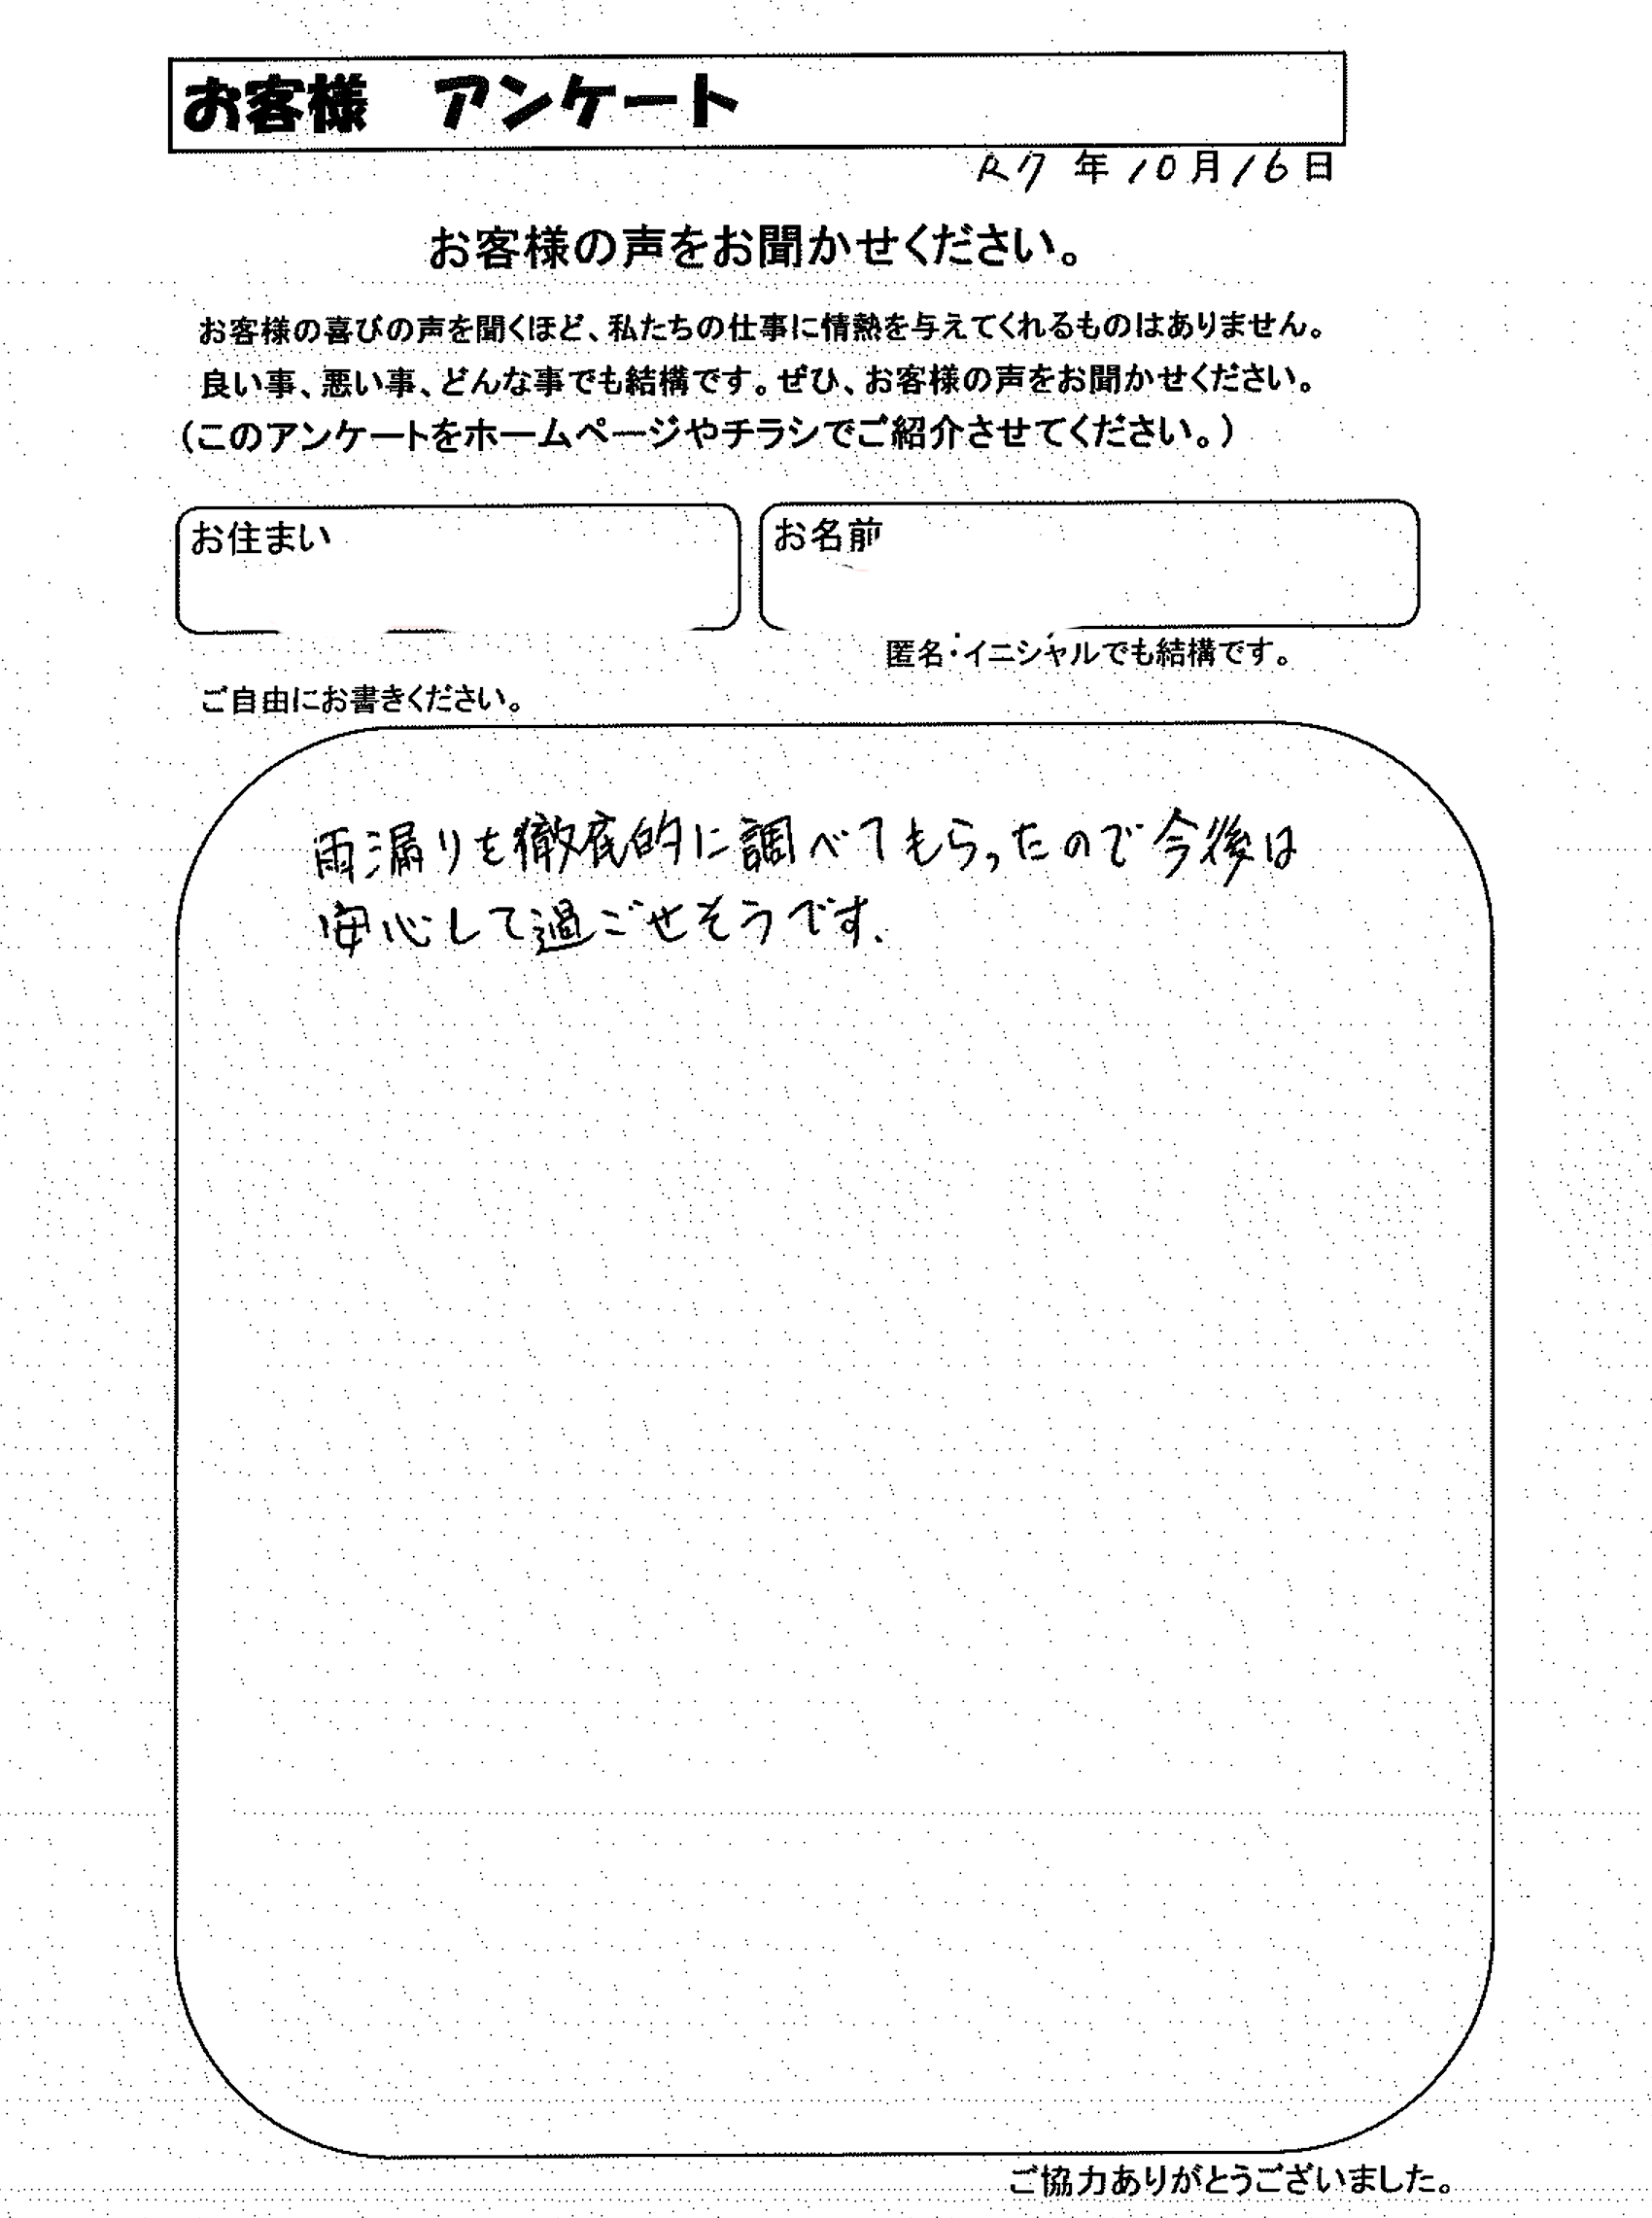 お客様 アンケート
R7 年 10 月 16 日
お客様の声をお聞かせください。
お客様の喜びの声を聞くほど、私たちの仕事に情熱を与えてくれるものはありません。
良い事、悪い事、どんな事でも結構です。ぜひ、お客様の声をお聞かせください。
(このアンケートをホームページやチラシでご紹介させてください。)
お住まい
お名前
匿名・イニシャルでも結構です。
ご自由にお書きください。
雨漏りを徹底的に調べてもらったので今後は
安心して過ごせそうです.
ご協力ありがとうございました。